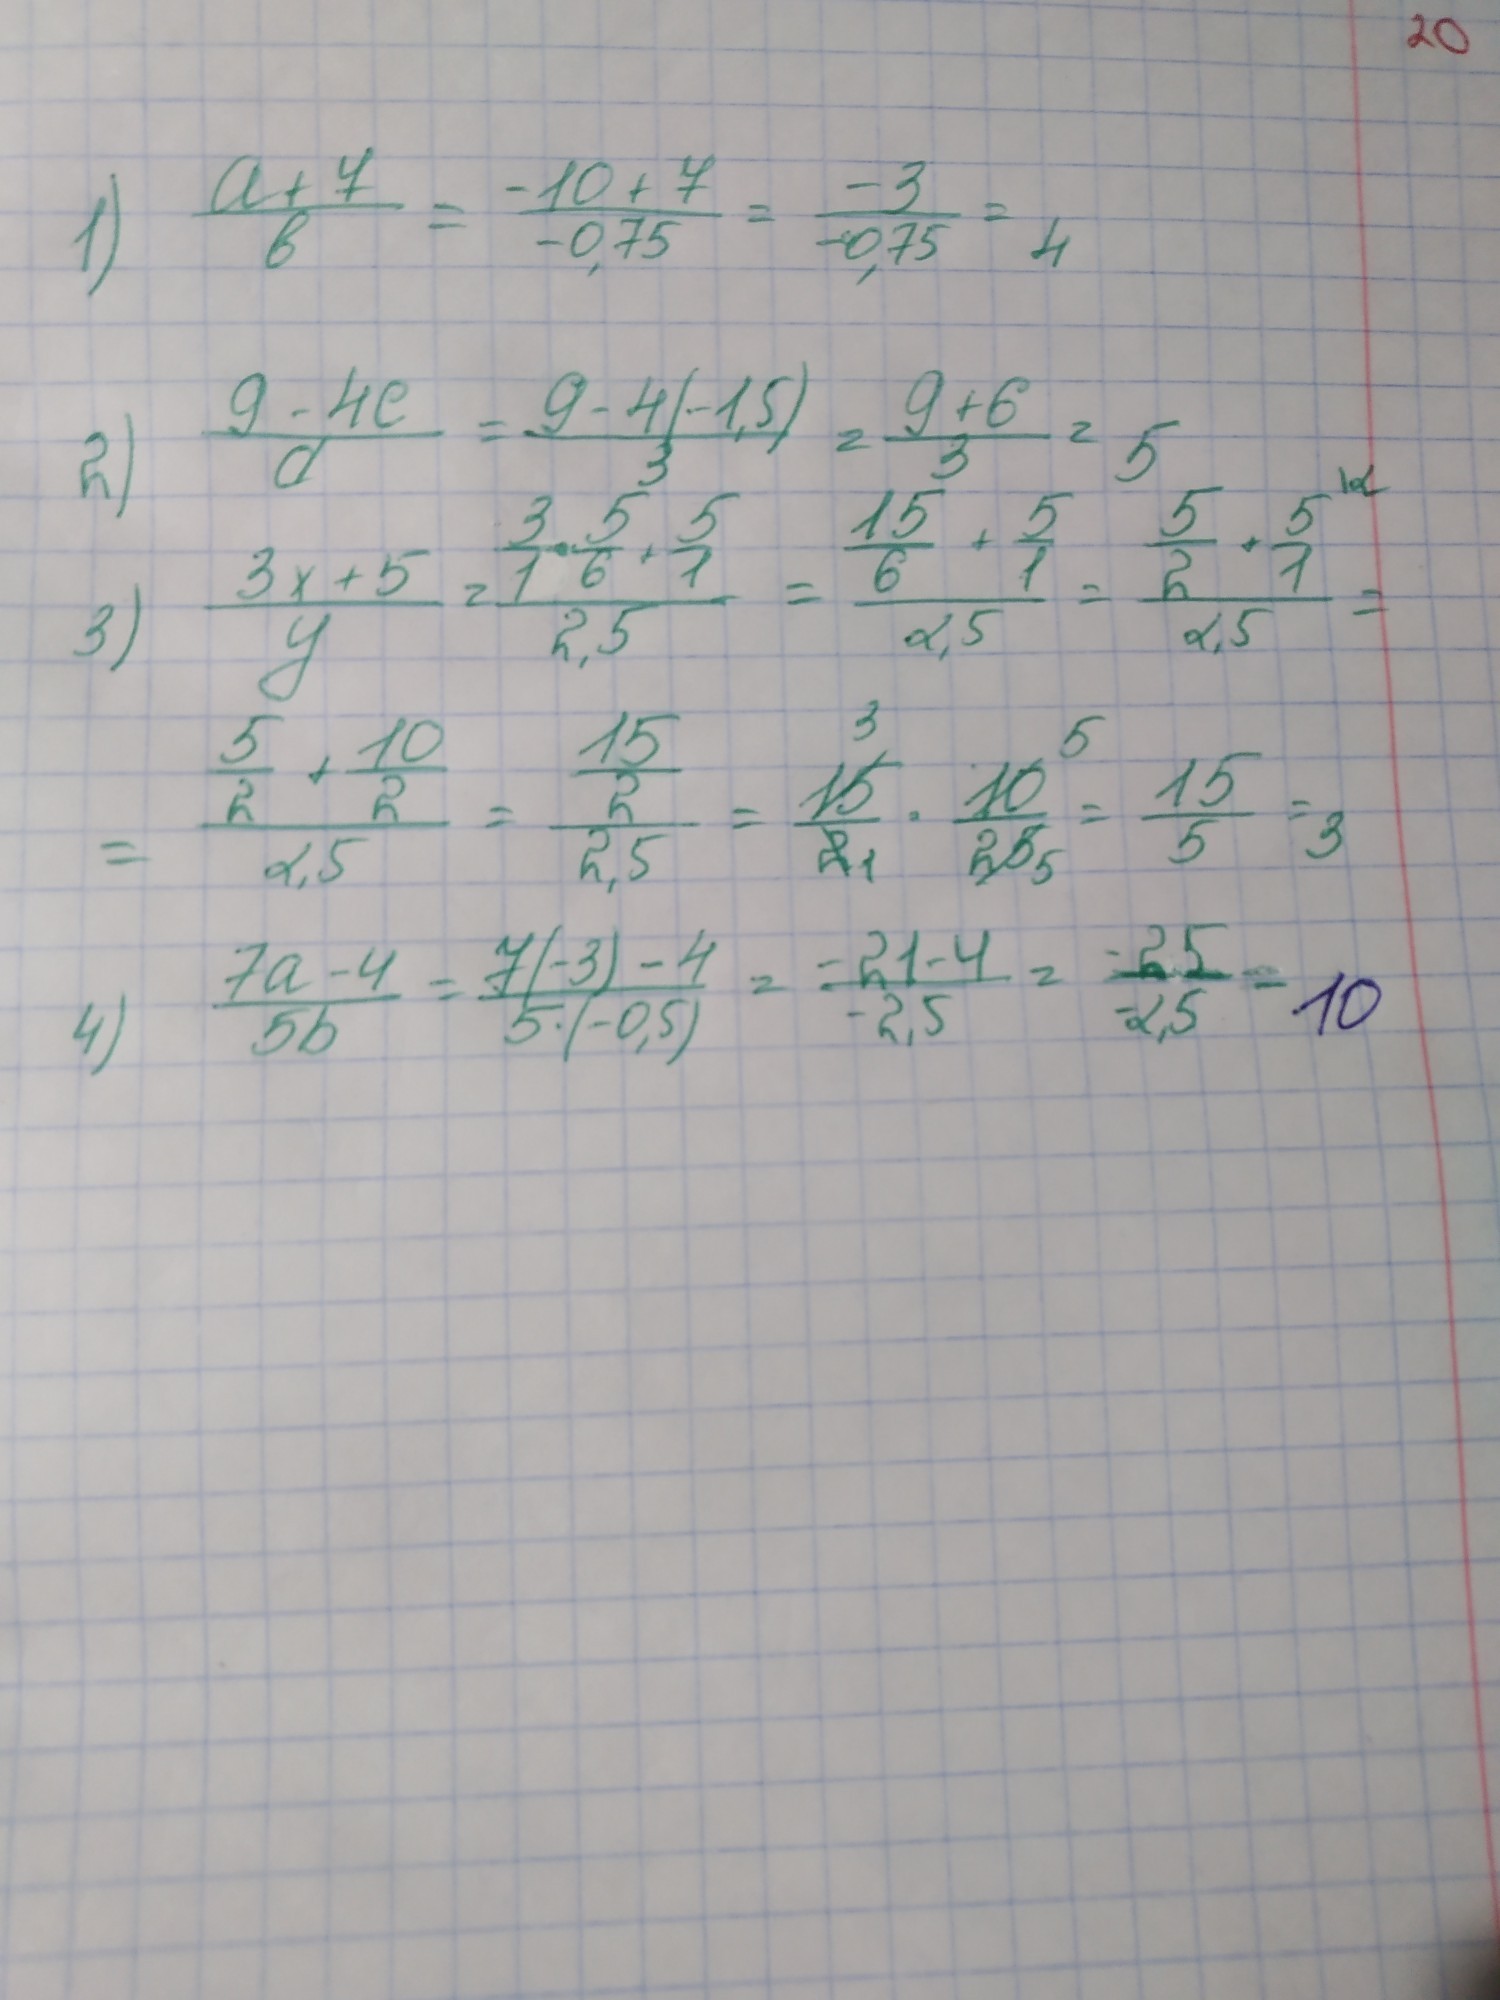 20
1) (a+7)/b = (-10+7)/(-0,75) = (-3)/(-0,75) = 4
2) (9-4c)/d = (9-4(-1,5))/3 = (9+6)/3 = 5
3) (3x+5)/y = (3/1·5/6+5/1)/2,5 = (15/6+5/1)/2,5 = (5/2+5/1 \2)/2,5 =
= (5/2+10/2)/2,5 = (15/2)/2,5 = 15 3/2 1 · 10 5/25 5 = 15/5 = 3
4) (7a-4)/5b = (7(-3)-4)/(5·(-0,5)) = (-21-4)/(-2,5) = (-25)/(-2,5) = 10